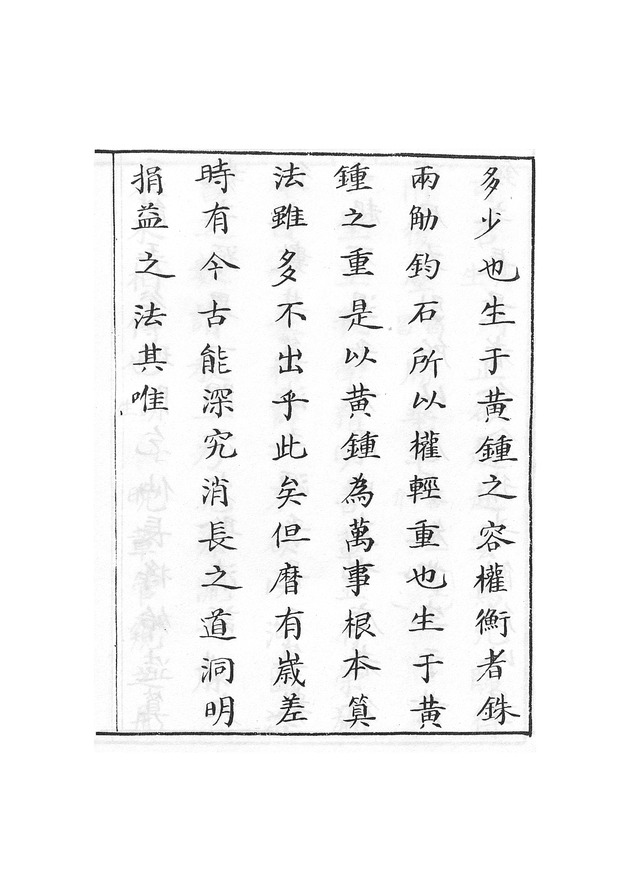 多少也生于黃鍾之容權衡者銖
兩觔鈞石所以權輕重也生于黃
鍾之重是以黃鍾為萬事根本算
法雖多不出乎此矣但曆有歲差
時有今古能深究消長之道洞明
損益之法其唯